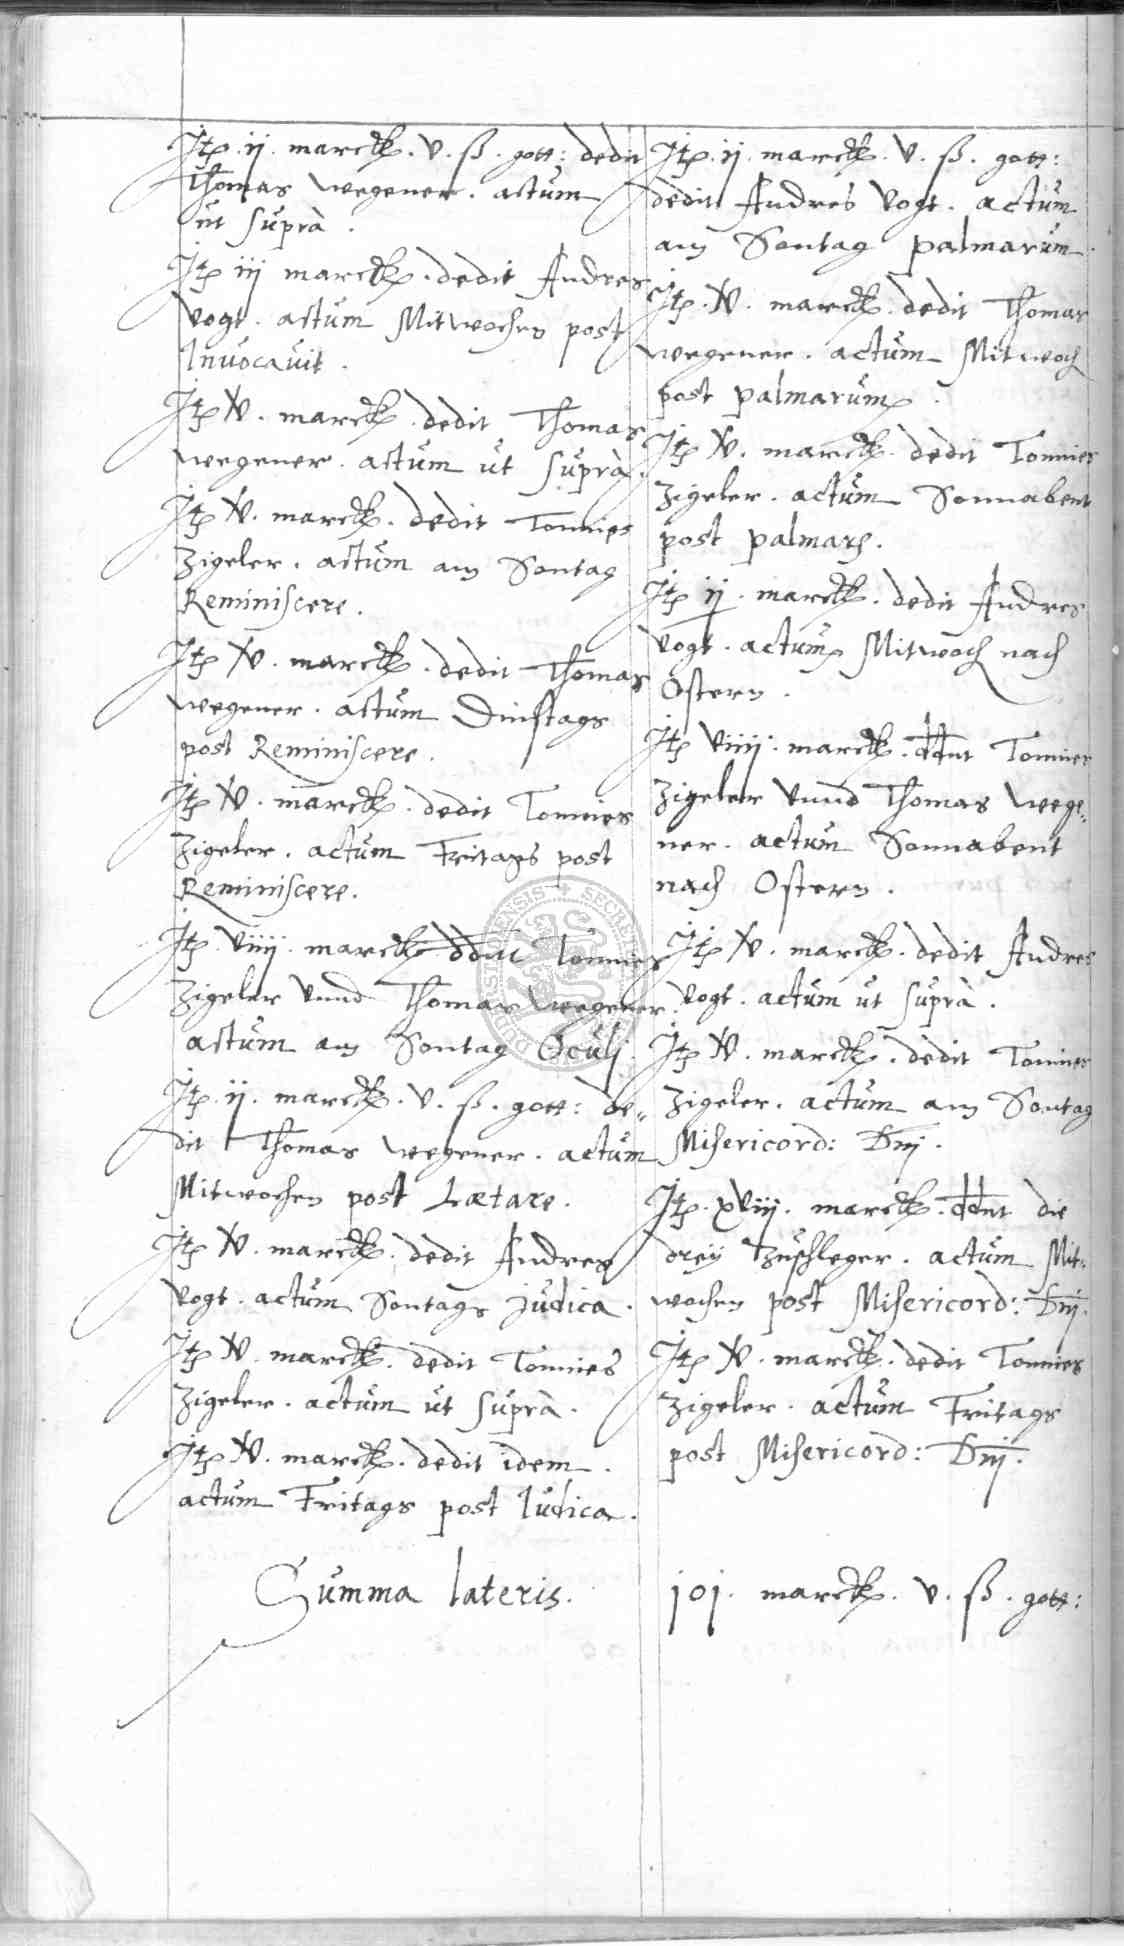 Jtē .ij. marck. v. ß. gott: dedit
Thomas wegener. actum
ut suprà.
Jtē iij marck. dedit Andres
Vogt. actum Mitwochen post
Invocavit.
Jtē v̸. marck. dedit Thomas
wegener. actum ut suprà.
Jtē v̸. marck. dedit Tonnies
Zigeler. actum am Sontag
Reminiscere.
Jtē v̸. marck. dedit Thomas
wegener. actum Dinstags
post Reminiscere.
Jtē v̸. marck. dedit Tonnies
Zigeler. actum Fritags post
Reminiscere.
Jtē viiij. marck ddnt Tonnies
Zigeler vnnd Thomas wegener.
actum am Sontag Oculj.
Jtē .ij. marck. v. ß. gott: de„
dit Thomas wegener. actum
Mitwochen post Lætare.
Jtē v̸. marck. dedit Andres
Vogt. actum Sontags judica.
Jtē v̸. marck. dedit Tonnies
Zigeler. actum ut suprà.
Jtē v̸. marck. dedit idem.
actum Fritags post Iudica.
Jtē .ij. marck. v. ß. gott:
dedit Andres Vogt. actum
am Sontag palmarum.
Jtē. v̸. marck. dedit Thomas
wegener. actum Mitwoch
post palmarum.
Jtē v̸. marck. dedit Tonnies
Zigeler. actum Sonnabent
post palmarū.
Jtē ij. marck. dedit Andres
Vogt. actum Mitwoch nach
Ostern.
Jtē viiij. marck. ddnt Tonnies
Zigeler vnnd Thomas wege„
ner. actum Sonnabent
nach Ostern.
Jtē v̸. marck. dedit Andres
Vogt. actum ut suprà.
Jtē v̸. marck. dedit Tonnies
Zigeler. actum am Sontag
Misericord: Dnj.
Jtē. xviij. marck. ddnt die
drey Zuschleger. actum Mit„
wochen post Misericord: Dnj.
Jtē v̸. marck. dedit Tonnies
Zigeler. actum Fritags
post Misericord: Dnj.
Summa lateris. 101. marck. v. ß. gott: